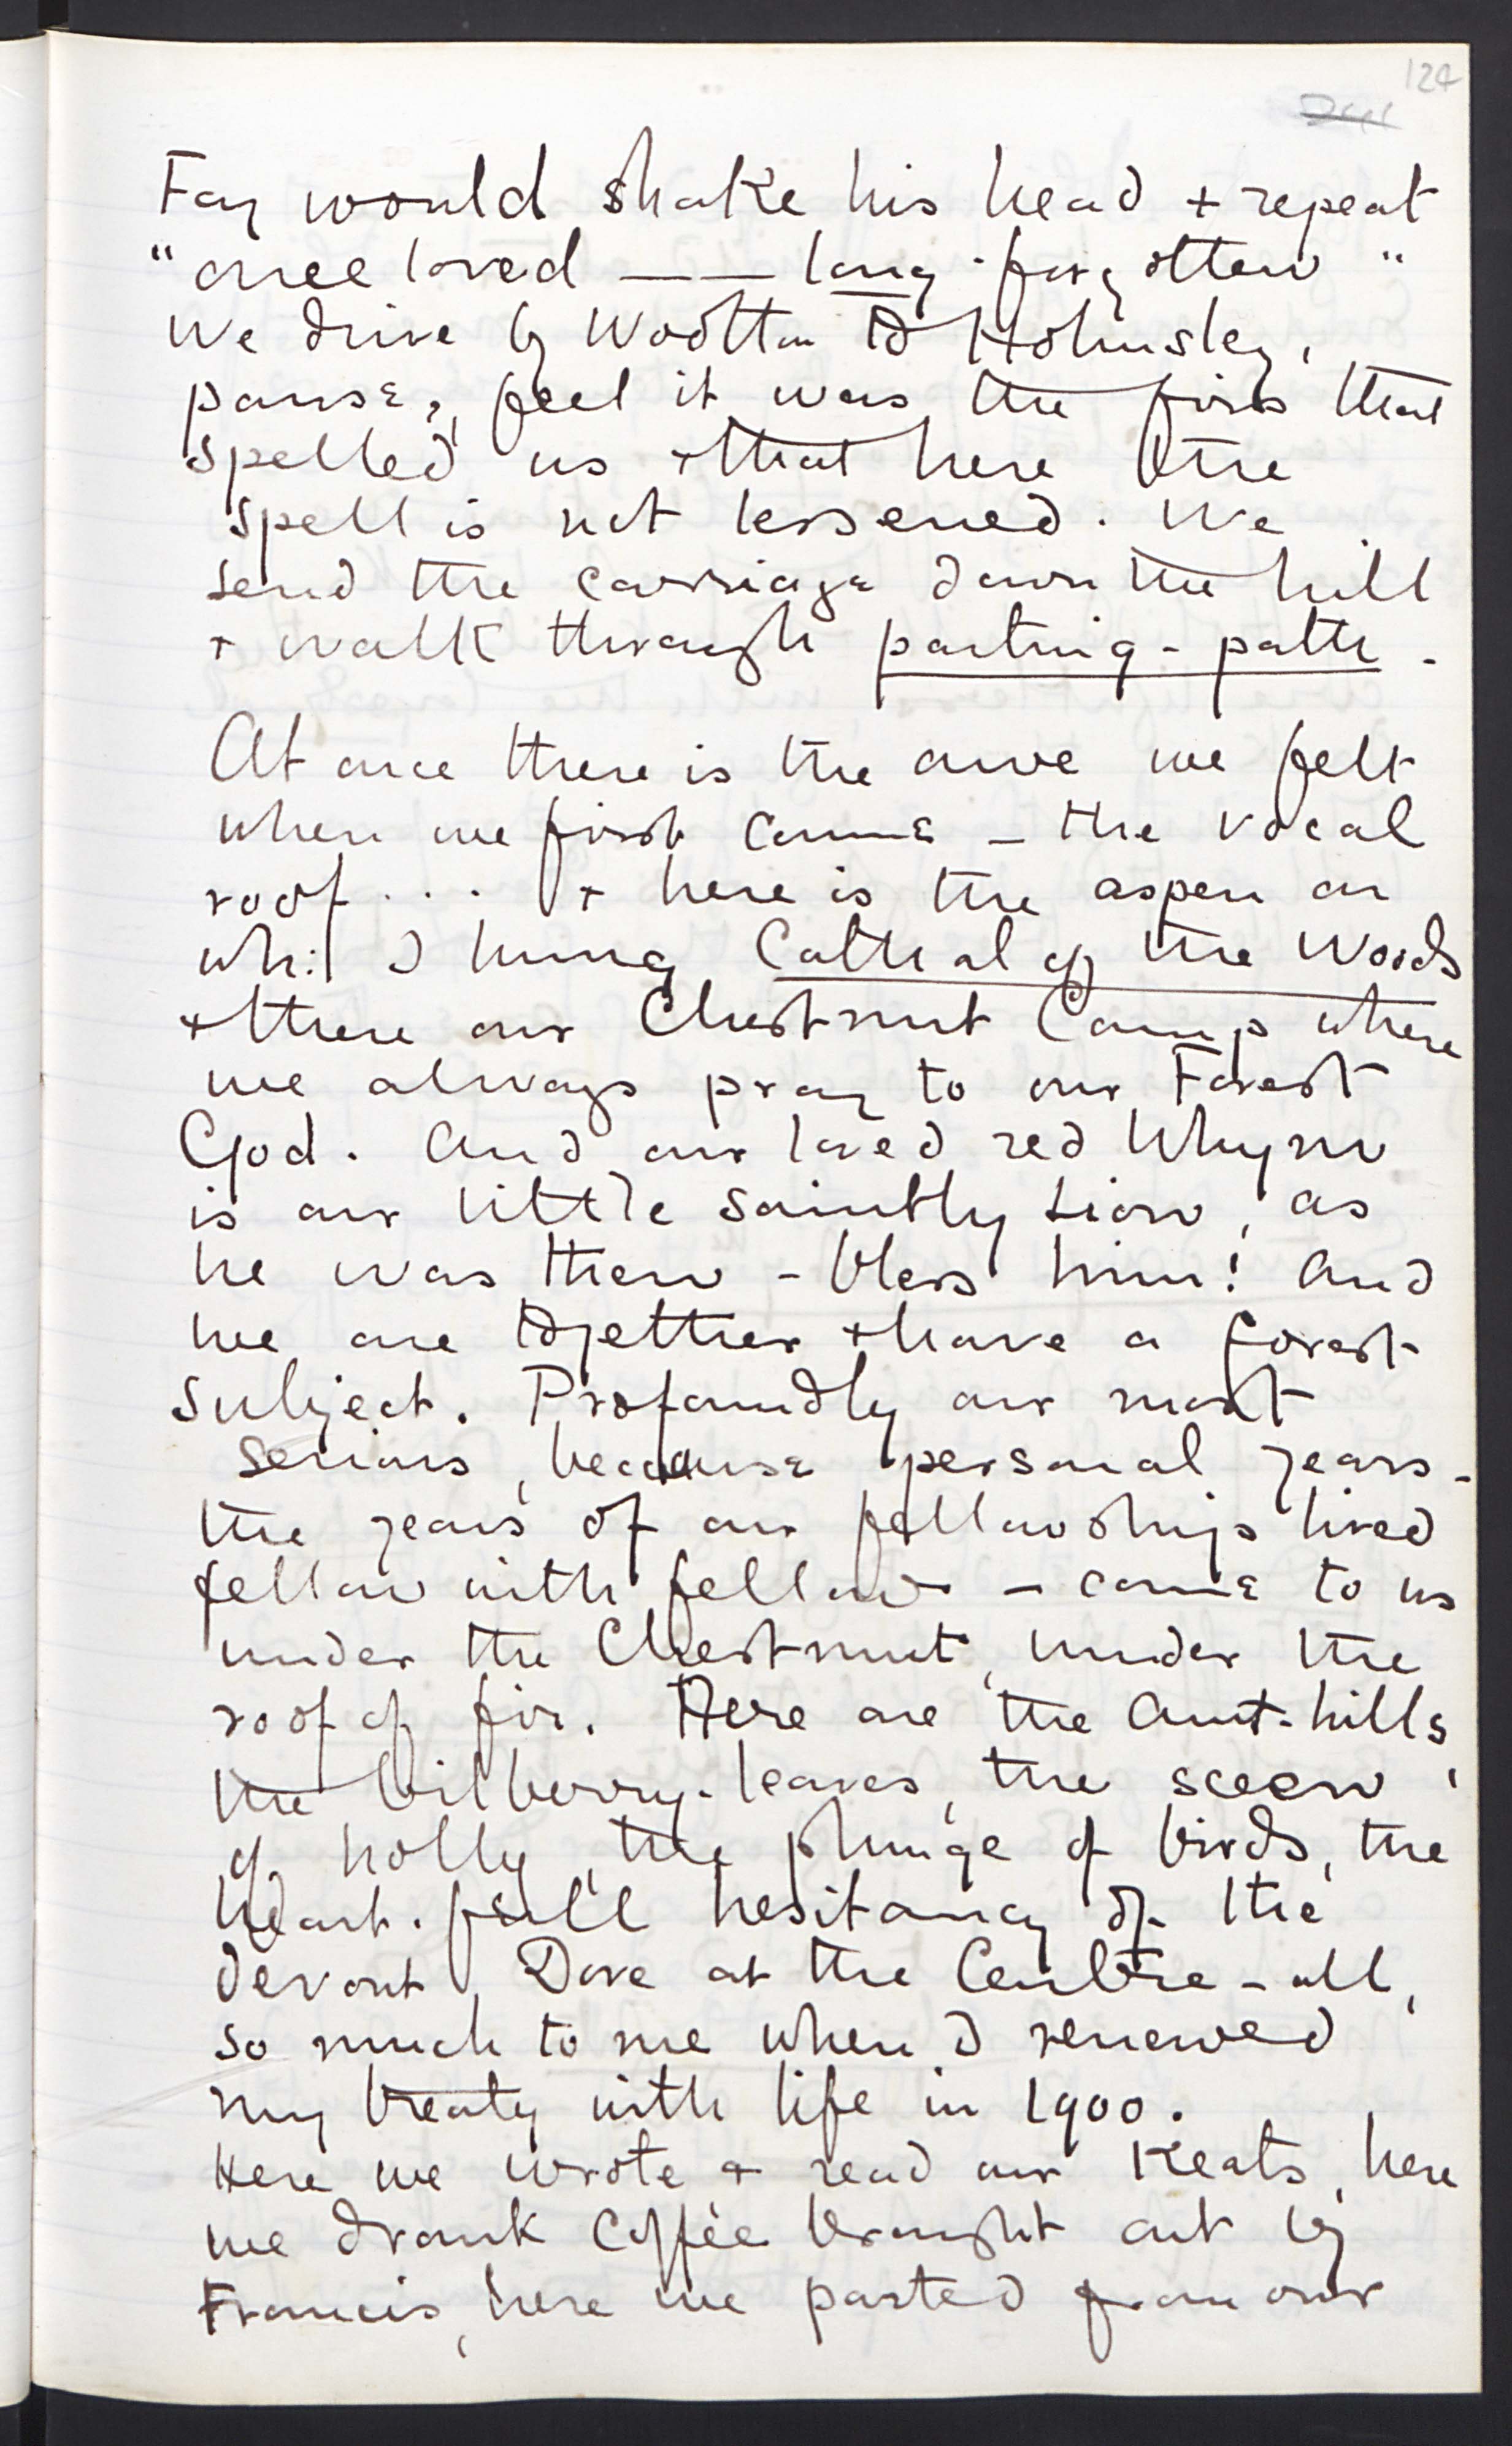 124
Fay would shake his head + repeat
"once loved —— long-forgotten"
We drive by Wootton to Holmsley,
pause, feel it was the firs that
spelled us + that here the
spell is not lessened. We
send the carriage down the hill
+ walk through parting-path.
At once there is the awe we felt
when we first came – the vocal
roof . . . + here is the aspen on
wh: I hung Cathal of the Woods
+ there our Chestnut Camp where
we always pray to our Forest
God. And our loved red Whym
is our little saintly Lion, as
he was then – bless him! And
we are together + have a forest
subject. Profoundly our most
serious, because personal years –
the years of our fellowship lived
fellow with fellow – came to us
under the Chestnut, under the
roof of fir. Here are the Ant-hills,
the bilberry-leaves, the screen
of holly, the plunge of birds, the
heart-full hesitancy of the
devout Dove at the Centre – all,
so much to me when I renewed
my treaty with life in 1900.
Here we wrote + read our Keats, here
we drank coffee brought out by
Francis, here we parted from our